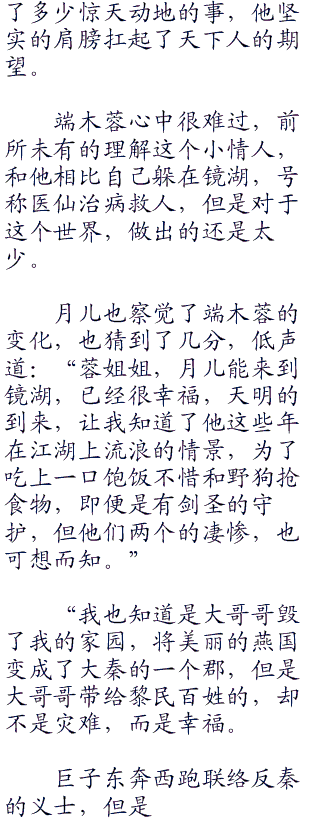 了多少惊天动地的事，他坚
实的肩膀扛起了天下人的期
望。
端木蓉心中很难过，前
所未有的理解这个小情人，
和他相比自己躲在镜湖，号
称医仙治病救人，但是对于
这个世界，做出的还是太
少。
月儿也察觉了端木蓉的
变化，也猜到了几分，低声
道：“蓉姐姐，月儿能来到
镜湖，已经很幸福，天明的
到来，让我知道了他这些年
在江湖上流浪的情景，为了
吃上一口饱饭不惜和野狗抢
食物，即便是有剑圣的守
护，但他们两个的凄惨，也
可想而知。”
“我也知道是大哥哥毁
了我的家园，将美丽的燕国
变成了大秦的一个郡，但是
大哥哥带给黎民百姓的，却
不是灾难，而是幸福。
巨子东奔西跑联络反秦
的义士，但是